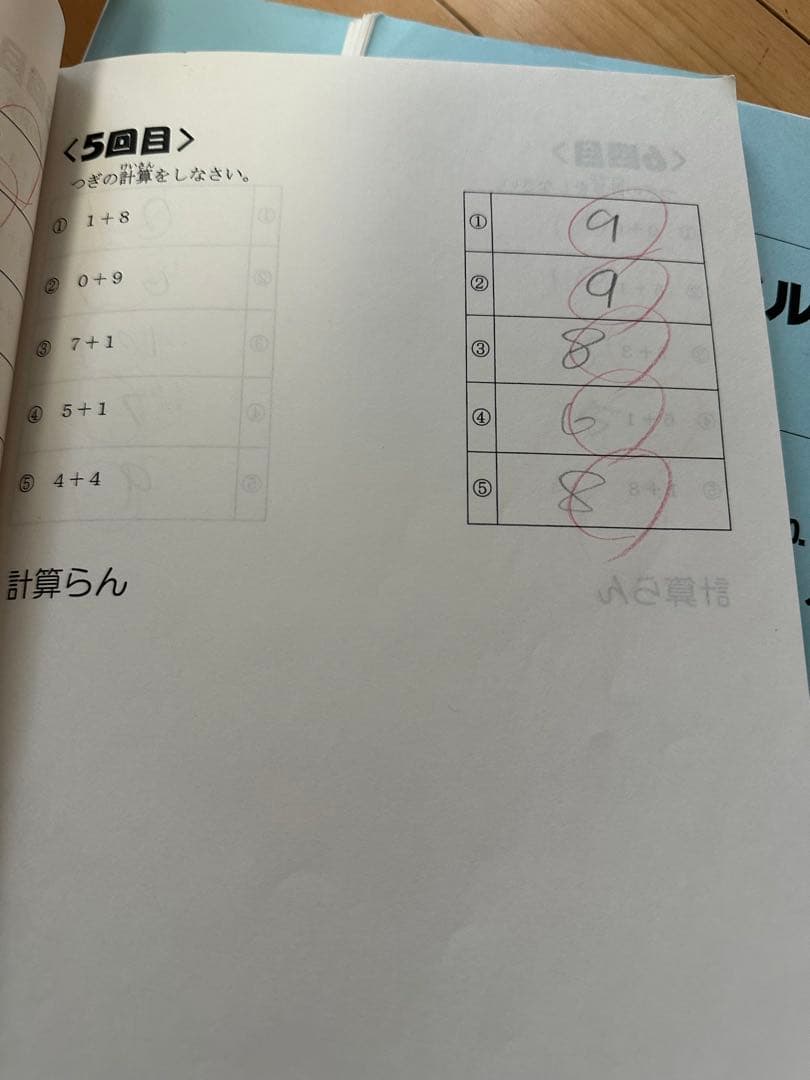 <5回目>
けいさん
つぎの計算をしなさい。
① 1+8
② 0+9
③ 7+1
④ 5+1
⑤ 4+4
① 9
② 9
③ 8
④ 6
⑤ 8
計算らん
ル